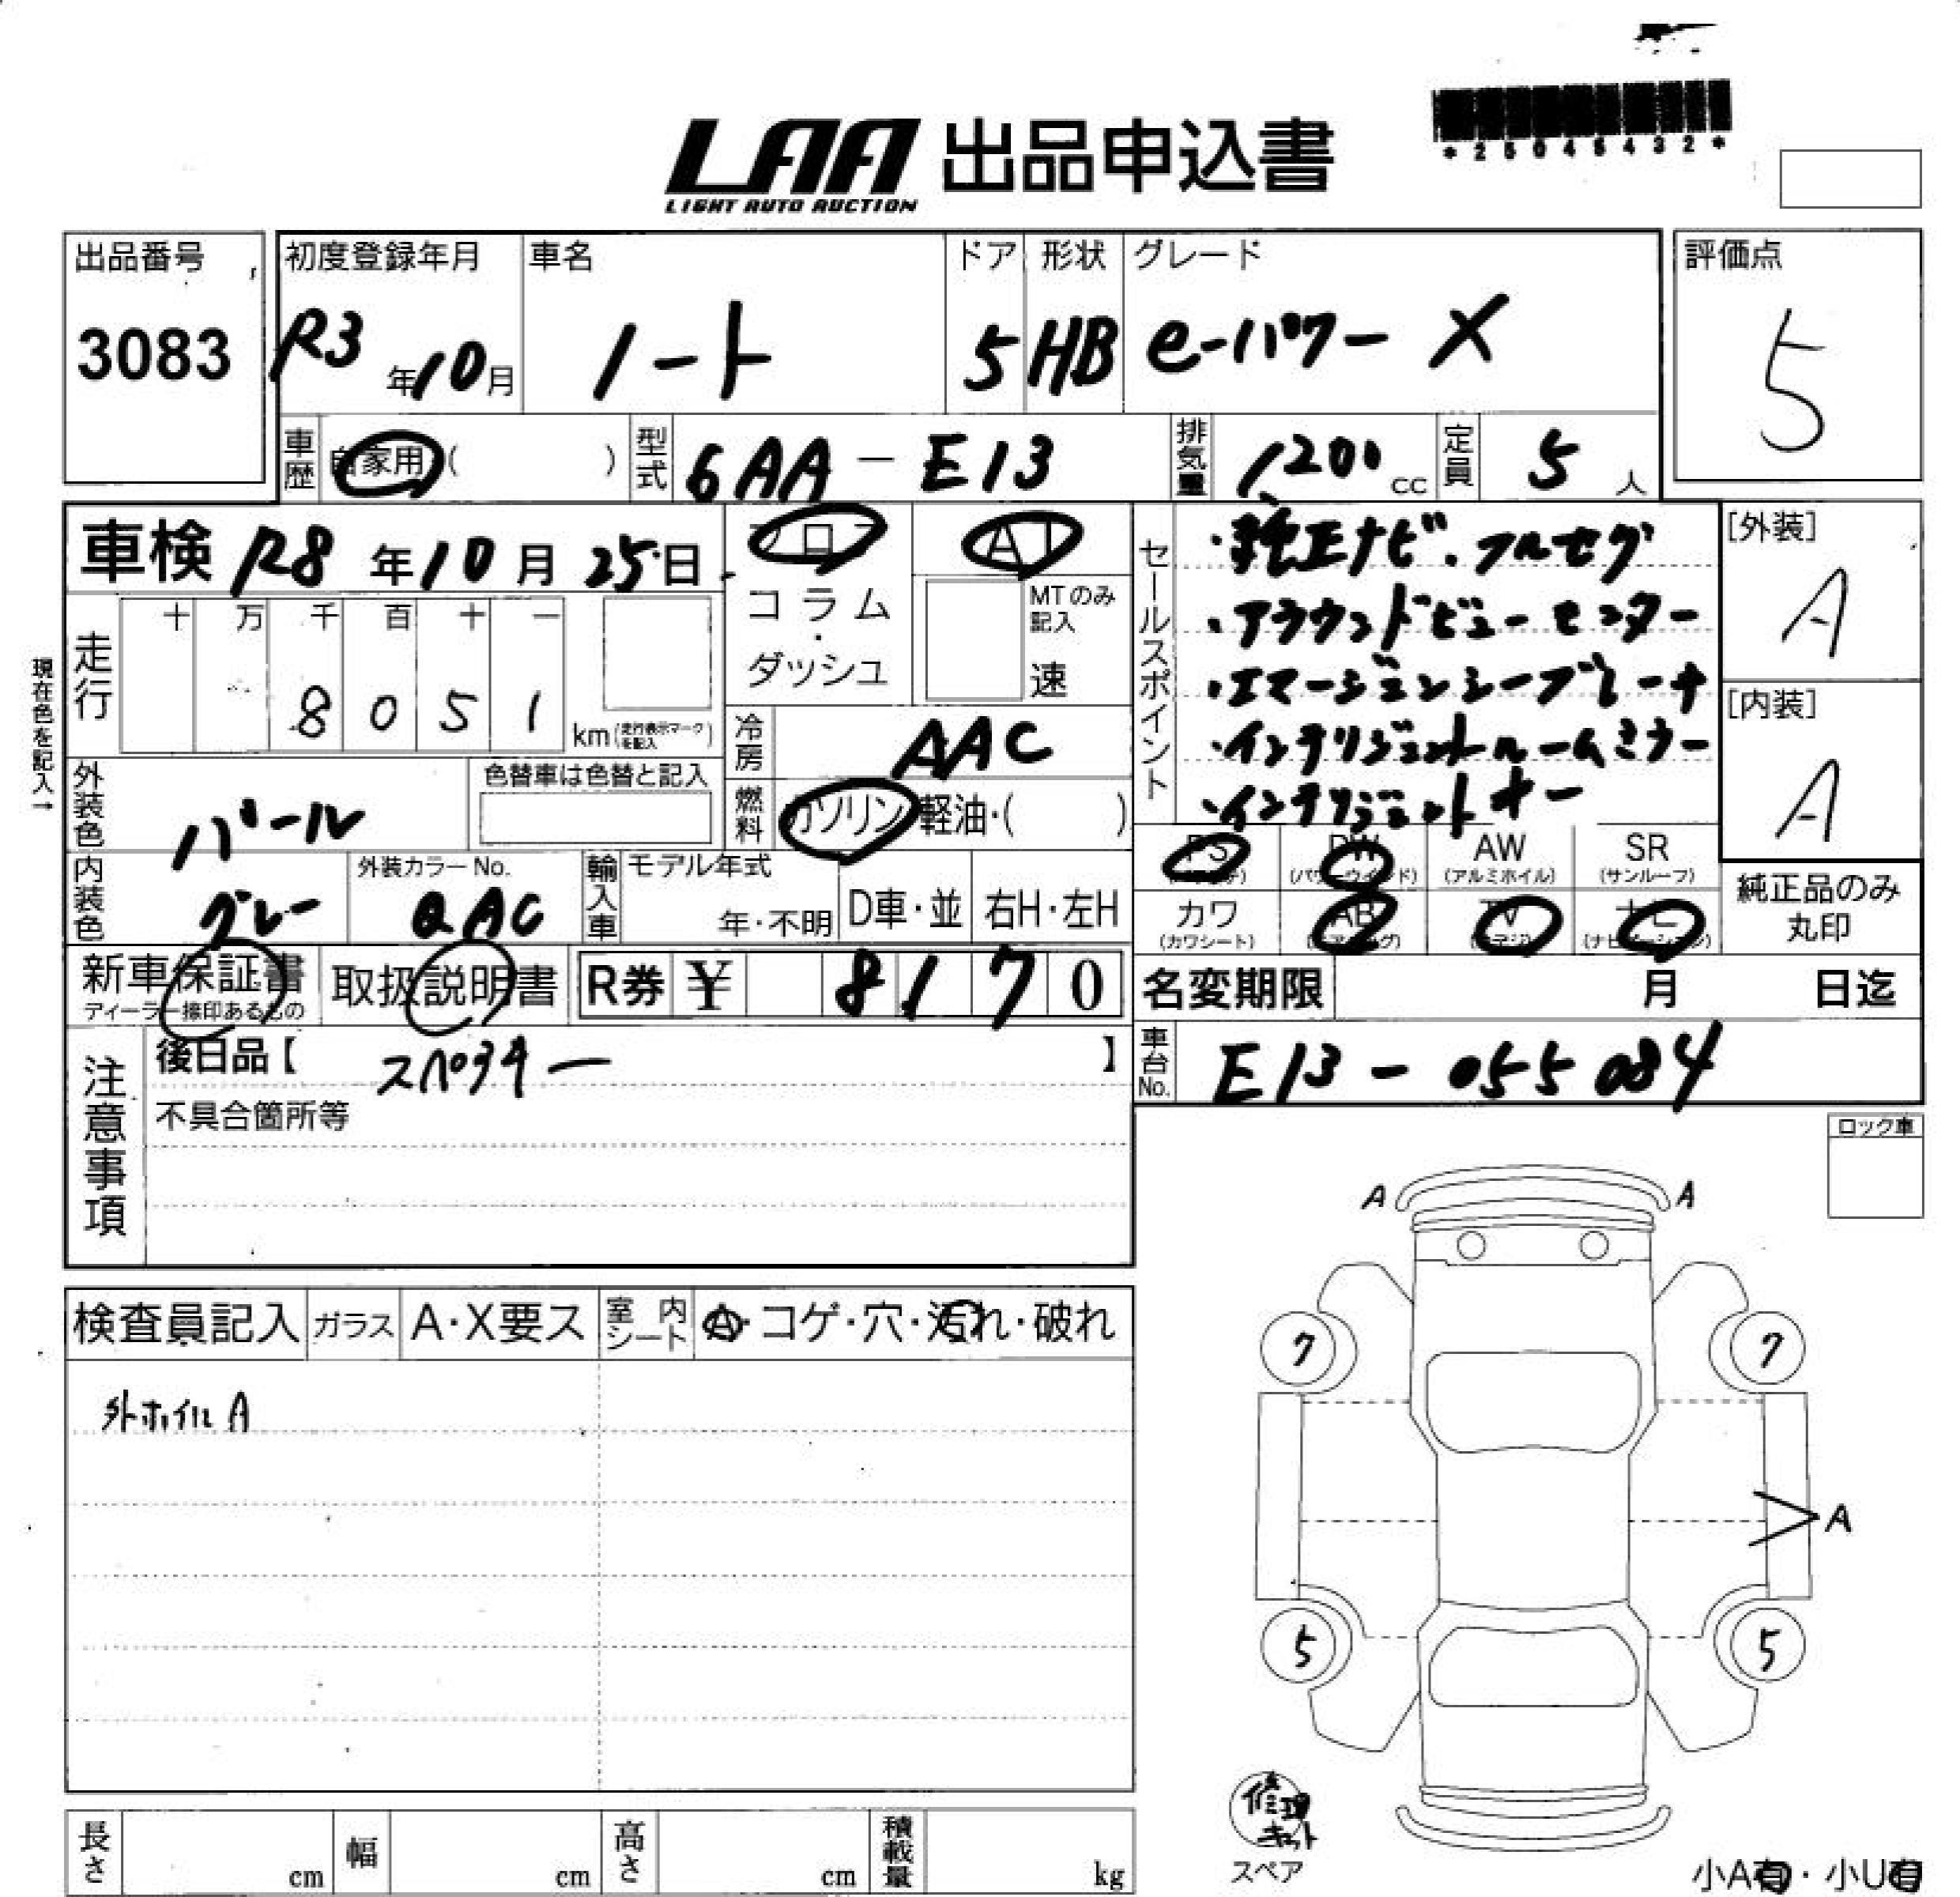 LAA 出品申込書
LIGHT AUTO AUCTION
*25045432*
出品番号
3083
初度登録年月
R3年10月
車名
ノート
ドア
5
形状
HB
グレード
e-パワー X
評価点
5
車歴
自家用 ( )
型式
6AA - E13
排気量
1,200 cc
定員
5 人
車検 R8年10月25日
フロア
コラム・ダッシュ
AT
MTのみ記入
速
セールスポイント
・純正ナビ・フルセグ
・アラウンドビューモニター
・エマージェンシーブレーキ
・インテリジェントルームミラー
・インテリジェントキー
[外装]
A
[内装]
A
現在色を記入→
走行
十 万 千 百 十 一
8 0 5 1
km (走行表示マークを記入)
冷房
AAC
外装色
パール
色替車は色替と記入
燃料
ガソリン・軽油・( )
内装色
グレー
外装カラーNo.
QAC
輸入車
モデル年式
年・不明
D車・並
右H・左H
PS
(パワステ)
PW
(パワーウインド)
AW
(アルミホイル)
SR
(サンルーフ)
カワ
(カワシート)
AB
(エアバッグ)
TV
ナビ
(ナビゲーション)
純正品のみ
丸印
新車保証書
ディーラー捺印あるもの
取扱説明書
R券 ¥ 8 1 7 0
名変期限
月 日迄
注意事項
後日品【 スペアキー 】
不具合箇所等
車台No.
E13 - 055084
ロック車
検査員記入
ガラス
A・X要ス
室内シート
A・コゲ・穴・汚れ・破れ
外ホイル A
A A
7 7
A
5 5
修理キット
スペア
小A有・小U有
長さ cm
幅 cm
高さ cm
積載量 kg